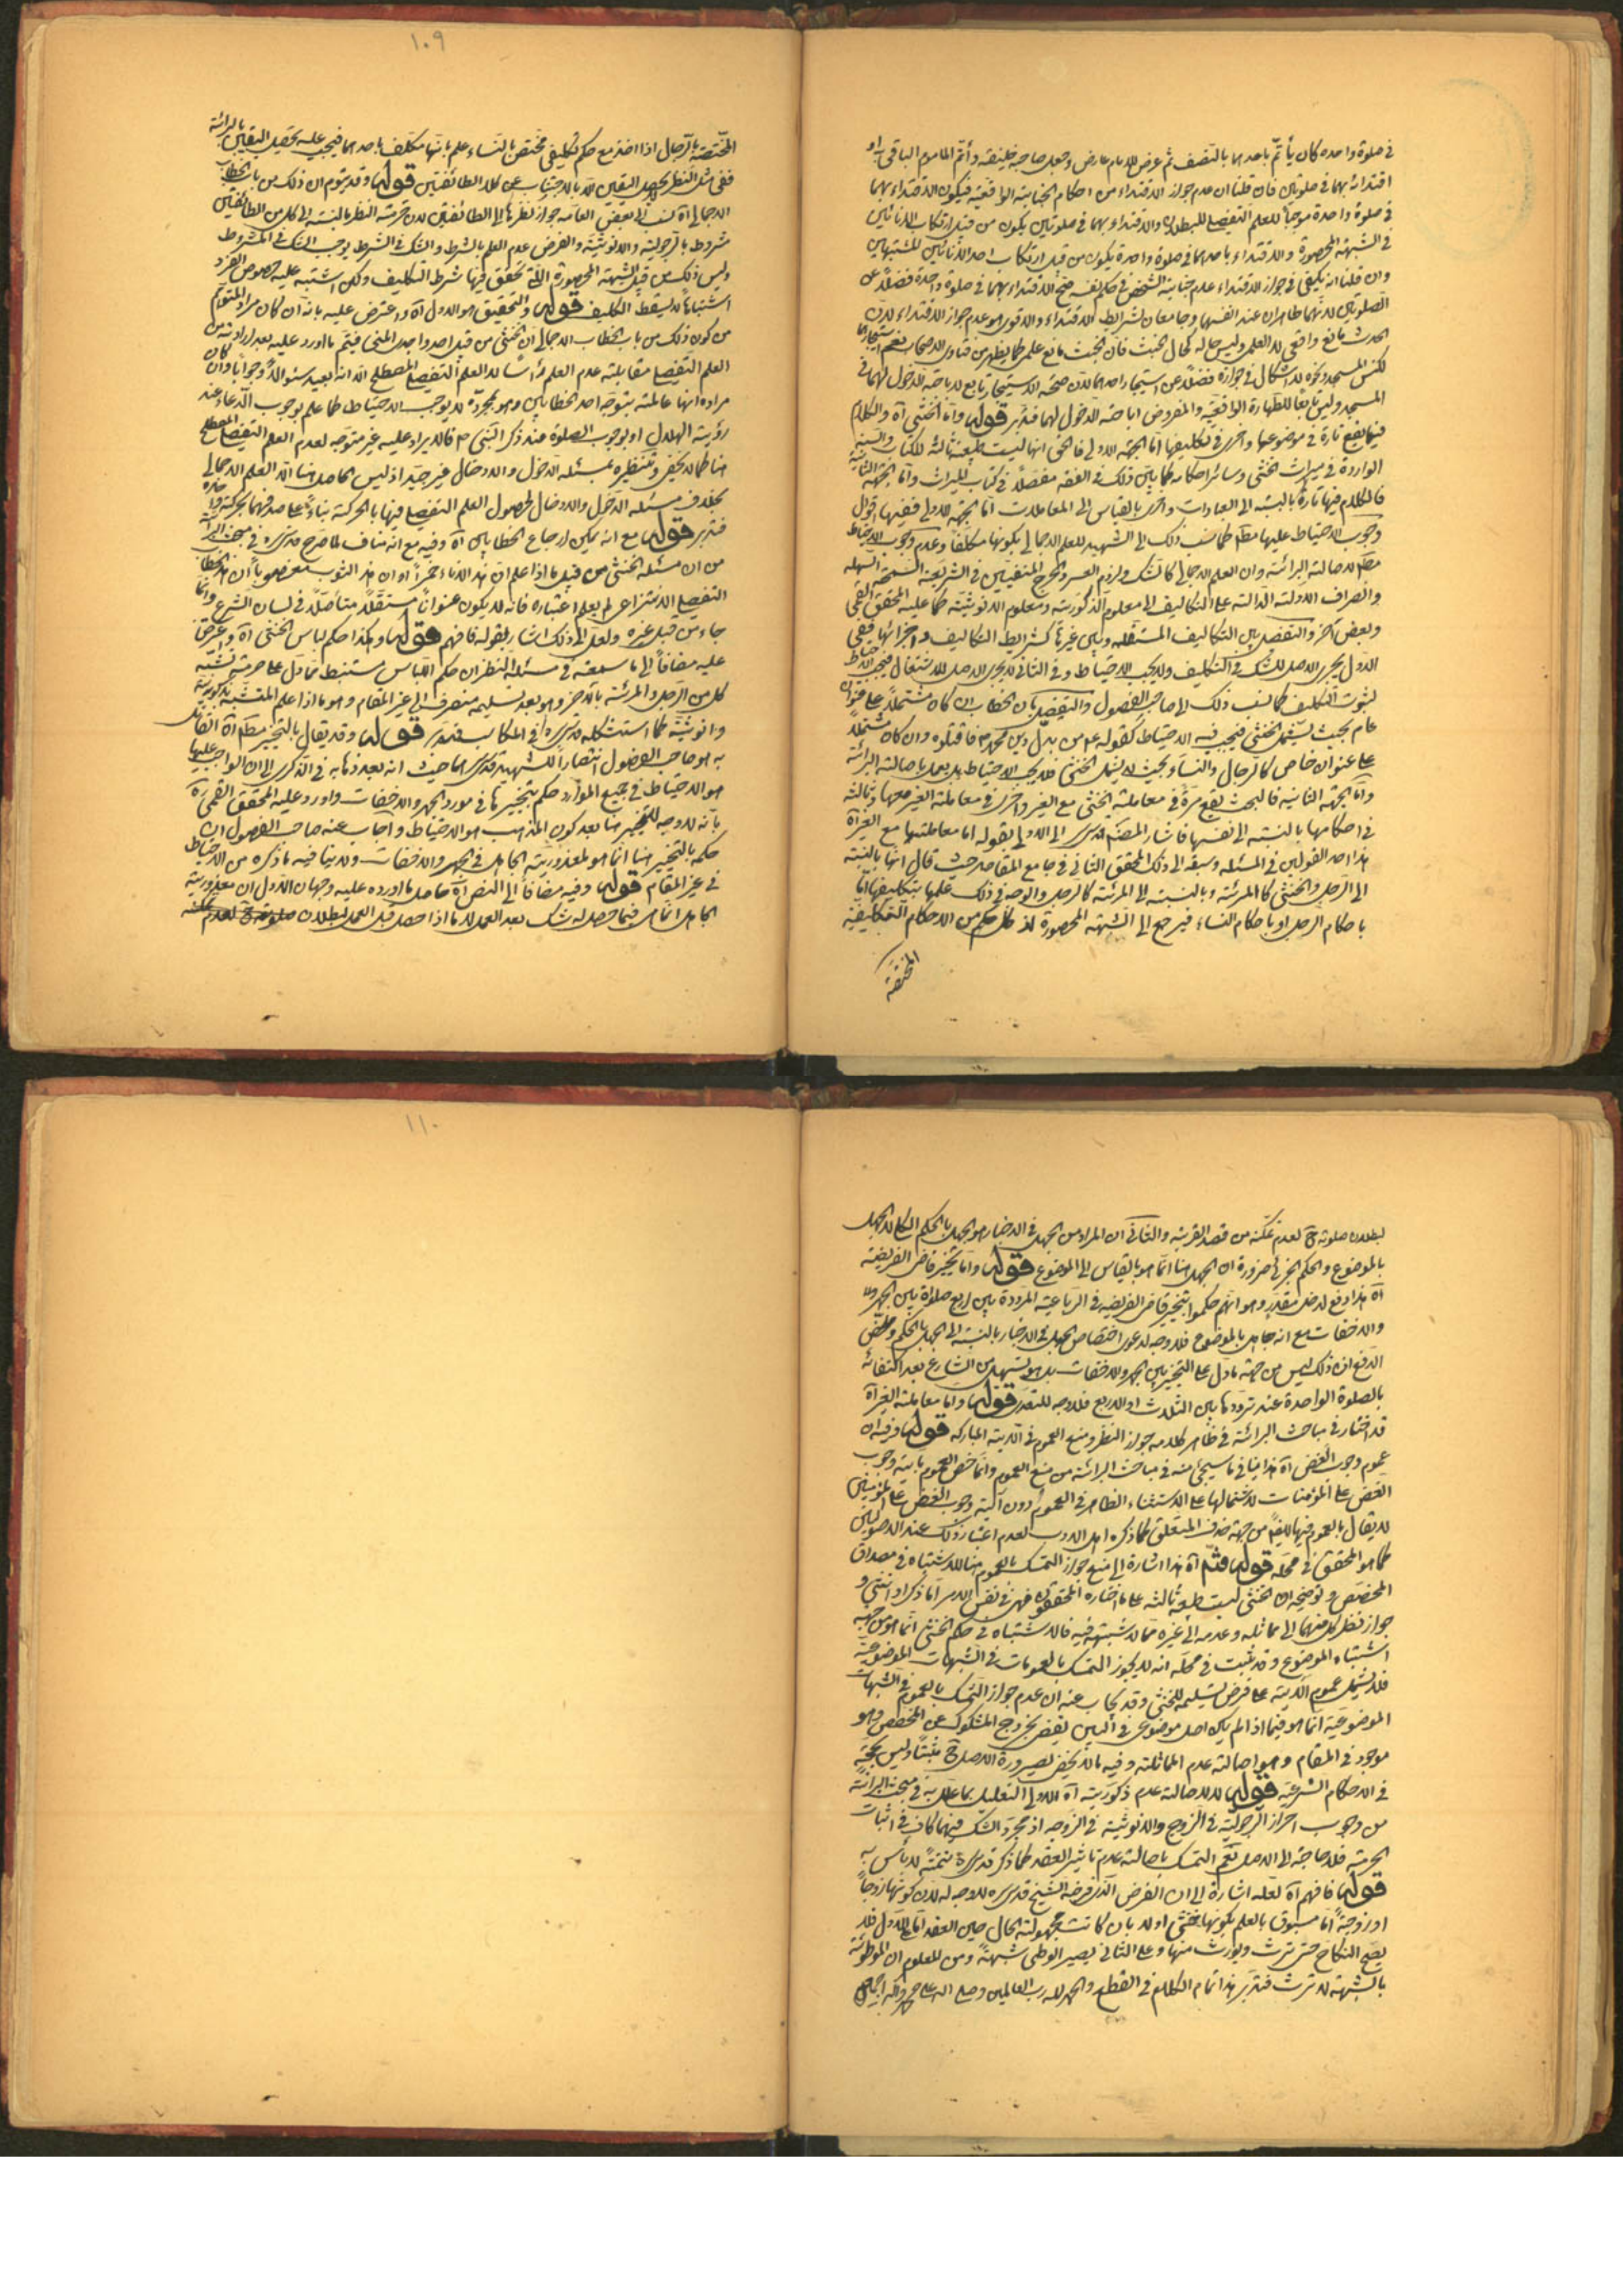 في صلوة واحده كان يأتمّ باحدهما بالنصف ثم عرض للامام عارض وجعل صاحبه خليفته وأتمّ المأموم الباقي به او
اقتدائه بهما في صلوتين فان قلنا ان عدم جواز الاقتداء من احكام الجنابة الواقعية فيكون الاقتداء بهما
في صلوة واحدة موجبا للعلم التفصيلي للبطلان والاقتداء بهما في صلوتين يكون من قبيل ارتكاب الانائين
في الشبهة المحصورة والاقتداء باحدهما في صلوة واحدة يكون من قبيل ارتكاب احد الانائين المشتبهين
وان قلنا انه يكفي في جواز الاقتداء عدم جنابة الشخص في حكم نفسه صح الاقتداء بهما في صلوة واحدة فضلا عن
الصلوتين لانهما طاهران عند انفسهما وجامعان لشرايط الاقتداء والاقوى هو عدم جواز الاقتداء لان
الحدث مانع واقعي لا علمي وليس حاله كحال الخبث فان الخبث مانع علمي كما يظهر من فتاوى الاصحاب نعم استيجارهما
لكنس المسجد ونحوه لا اشكال في جوازه فضلا عن استيجار احدهما لان صحة الاستيجار تابع لاباحة الدخول لهما في
المسجد وليس تابعا للطهارة الواقعية والمفروض اباحة الدخول لهما فتدبر قوله وأما الخنثى آه والكلام
فيها يقع تارة في موضوعها واخرى في تكليفها اما الجهة الاولى فالحق انها ليست طبيعة ثالثة للكتاب والسنة
الواردة في ميراث الخنثى وسائر احكامه كما بين ذلك في الفقه مفصلا في كتاب الميراث وأما الجهة الثانية
فالكلام فيها تارة بالنسبة الى العبادات واخرى بالقياس الى المعاملات أما الجهة الاولى ففيها اقوال
وجوب الاحتياط عليها مطم كما نسب ذلك الى الشهيد للعلم الاجمالي بكونها مكلفا وعدم وجوب الاحتياط
مطم لاصالة البرائة وان العلم الاجمالي كالشك ولزوم العسر والحرج المنفيين في الشريعة السمحة السهلة
وانصراف الادلة الدالة على التكاليف الى معلوم الذكورية ومعلوم الانوثية كما عليه المحقق القمي
وبعض آخر والتفصيل بين التكاليف المستقلة وبين غيرها كشرايط التكاليف واجزائها ففي
الاول يجري الاصل للشك في التكليف ولا يجب الاحتياط وفي الثاني لا يجري الاصل للاشتغال فيجب الاحتياط
لثبوت التكليف كما نسب ذلك الى صاحب الفصول والتفصيل بان الخطاب ان كان مشتملا على عنوان
عام بحيث يشمل الخنثى فيجب فيه الاحتياط كقوله ع من بدل دين محمد ص فاقتلوه وان كان مشتملا
على عنوان خاص كالرجال والنساء بحيث لا يشمل الخنثى فلا يجب الاحتياط بل يعمل باصالة البرائة
وأما الجهة الثانية فالبحث يقع مرة في معاملة الخنثى مع الغير واخرى في معاملة الغير معها وثالثة
في احكامها بالنسبة الى نفسها فاشار المصنف قدس سره الى الاولى بقوله اما معاملتها مع الغير آه
هذا احد القولين في المسئلة وسبقه الى ذلك المحقق الثاني في جامع المقاصد حيث قال انها بالنسبة
الى الرجل والخنثى كالمرئة وبالنسبة الى المرئة كالرجل والوجه في ذلك علمها بتكليفها اما
باحكام الرجل او باحكام النساء فيرجع الى الشبهة المحصورة لان كل حكم من الاحكام التكليفية
المختصة
١٠٩
المختصة بالرجال اذا اضم مع حكم تكليفي مختص بالنساء علم بانها مكلف باحدهما فيجب عليه تحصيل اليقين بالبرائة
ففي مثل النظر لا يحصل اليقين الا بالاجتناب عن كلا الطائفتين قوله وقد يتوهم ان ذلك من باب الخطاب
الاجمالي آه نسب الى بعض العامة جواز نظرها الى الطائفتين لان حرمة النظر بالنسبة الى كل من الطائفتين
مشروط بالرجولية والانوثية والفرض عدم العلم بالشرط والشك في الشرط يوجب الشك في المشروط
وليس ذلك من قبيل الشبهة المحصورة التي تحقق فيها شرط التكليف ولكن اشتبه عليه خصوص الفرد
اشتباها لا يسقط التكليف قوله والتحقيق هو الاول آه واعترض عليه بانه ان كان مراد المتوهم
من كون ذلك من باب الخطاب الاجمالي ان الخنثى من قبيل احد واجدي المني فيتم ما اورد عليه بعد ارادته من
العلم التفصيلي مقابلة عدم العلم رأسا لا العلم التفصيلي المصطلح الا انه بعيد سئوالا وجوابا وان كان
مراده انها عالمة بتوجه احد الخطابين وهو بمجرده لا يوجب الاحتياط كما علم بوجوب الدعاء عند
رؤية الهلال او بوجوب الصلوة عند ذكر النبي ص فالايراد عليه غير متوجه لعدم العلم التفصيلي المصطلح
هنا كما لا يخفى وتنظيره بمسئلة الدخول والادخال غير جيد اذ ليس الحاصل هنا الا العلم الاجمالي
بخلاف مسئلة الدخول والادخال لحصول العلم التفصيلي فيها بالحركة بناء على صدقهما بحركة واحدة
فتدبر قوله مع انه يمكن ارجاع الخطابين آه وفيه مع انه مناف لما صرح قدس سره في مبحث البرائة
من ان مسئلة الخنثى من قبيل ما اذا علم ان هذا الاناء خمرا او ان هذا الثوب مغصوبا ان هذا الخطاب
التفصيلي الانتزاعي لم يعلم اعتباره فانه لا يكون عنوانا مستقلا متأصلا في لسان الشرع وانما
جاء من قبيل غيره ولعل الى ذلك اشار بقوله فافهم قوله وهكذا حكم لباس الخنثى آه واعترض
عليه مضافا الى ما سمعته في مسئلة النظر ان حكم اللباس مستنبط مما دل على حرمة تشبه
كل من الرجل والمرئة بالآخر وهو بعد تسليمه منصرف الى غير المقام وهو ما اذا علم المتشبه بذكوريته
وانوثيته كما استشكله قدس سره في المكاسب فتدبر قوله وقد يقال بالتخيير مطم آه القائل
به هو صاحب الفصول انتصارا للشهيد قدس سرهما حيث انه بعد ذهابه في الذكرى الى ان الواجب عليها
هو الاحتياط في جميع الموارد حكم بتخييرها في مورد الجهر والاخفات واورد عليه المحقق القمي ره
بانه لا وجه للتخيير هنا بعد كون المذهب هو الاحتياط واجاب عنه صاحب الفصول ان
حكمه بالتخيير هنا انما هو لمعذورية الجاهل في الجهر والاخفات ولا ينافيه ما ذكره من الاحتياط
في غير المقام قوله وفيه مضافا الى النص آه حاصل ما اورده عليه وجهان الاول ان معذورية
الجاهل انما هي فيما حصل له شك بعد العمل لا ما اذا حصل قبل العمل لبطلان صلوته ح لعدم تمكنه
١١٠
لبطلان صلوته ح لعدم تمكنه من قصد القربة والثاني ان المراد من الجهل في الاخبار هو الجهل بالحكم الكلي لا الجهل
بالموضوع والحكم الجزئي ضرورة ان الجهل هنا انما هو بالقياس الى الموضوع قوله واما تخيير قاضي الفريضة
آه هذا دفع لدخل مقدر وهو انهم حكموا بتخيير قاضي الفريضه في الرباعية المرددة بين اربع صلوة بين الجهر
والاخفات مع انه جاهل بالموضوع فلا وجه لدعوى اختصاص الجهل في الاخبار بالنسبة الى الجهل بالحكم وملخص
الدفع ان ذلك ليس من جهة ما دل على التخيير بين الجهر والاخفات بل هو تسهيل من الشارع بعد اكتفائه
بالصلوة الواحدة عند ترددها بين الثلاث او الاربع فلا وجه للتعدي قوله واما معاملة الغير آه
قد اختار في مباحث البرائة في ظاهر كلامه جواز النظر ومنع العموم في الآية المباركه قوله وفيه ان
عموم وجوب الغض آه هذا ينافي ما سيجئ منه في مباحث البرائة من منع العموم وانما خص العموم بآية وجوب
الغض على المؤمنات لاشتمالها على الاستثناء الظاهر في العموم دون آية وجوب الغض على المؤمنين
لا يقال بالعموم فيها ايضا من جهة حذف المتعلق كما ذكره اهل الادب لعدم اعتبار ذلك عند الاصوليين
كما هو المحقق في محله قوله فتأمل آه هذا اشارة الى منع جواز التمسك بالعموم هنا للاشتباه في مصداق
المخصص وتوضيحه ان الخنثى ليست طبيعة ثالثة على ما اختاره المحققون فهي في نفس الامر اما ذكر او انثى و
جواز نظر كل منهما الى مماثله وعدمه الى غيره مما لا شبهة فيه فالاشتباه في حكم الخنثى انما هو من جهة
اشتباه الموضوع وقد ثبت في محله انه لا يجوز التمسك بالعمومات في الشبهات الموضوعية
فلا يشمل عموم الآية على فرض تسليمه للخنثى وقد يجاب عنه ان عدم جواز التمسك بالعموم في الشبهات
الموضوعية انما هو فيما اذا لم يكن اصل موضوعي في البين يقضي بخروج المشكوك عن المخصص وهو
موجود في المقام وهو اصالة عدم المماثلة وفيه ما لا يخفى لصيرورة الاصل ح مثبتا وليس بحجة
في الاحكام الشرعية قوله لاصالة عدم ذكوريته آه الاولى التعليل بما علل به في مبحث البرائة
من وجوب احراز الرجولية في الزوج والانوثية في الزوجه اذ مجرد الشك فيهما كاف في اثبات
الحرمة فلا حاجة الى الاصل نعم التمسك باصالة عدم تاثير العقد كما ذكر قدس سره ثمة لا بأس به
قوله فافهم آه لعله اشارة الى ان الفرض الذي فرضه الشيخ قدس سره لا وجه له لان كونها زوجا
او زوجة اما مسبوق بالعلم بكونها خنثى اولا بان كانت مجهولة الحال حين العقد اما على الاول فلا
يصح النكاح حتى ترث ويورث منها وعلى الثاني يصير الوطي شبهة ومن المعلوم ان الموطوئة
بالشبهة لا ترث فتدبر هذا تمام الكلام في القطع والحمد لله رب العالمين وصلى الله على محمد وآله اجمعين